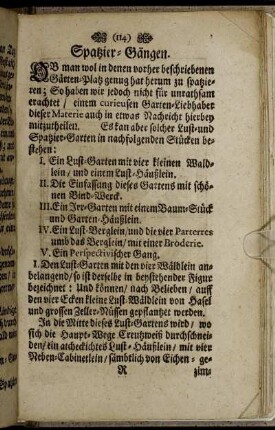 (114)
Spatzier-Gängen.
OB man wol in denen vorher beschriebenen
Gärten-Platz genug hat herum zu spatzie-
ren; So haben wir jedoch nicht für unrathsam
erachtet / einem curieusen Garten-Liebhaber
dieser Materie auch in etwas Nachricht hierbey
mitzutheilen. Es kan aber solcher Lust-und
Spatzier-Garten in nachfolgenden Stücken be-
stehen:
I. Ein Lust-Garten mit vier kleinen Wäld-
lein / und einem Lust-Häußlein.
II. Die Einfassung dieses Gartens mit schö-
nen Bind-Werck.
III. Ein Irr-Garten mit einem Baum-Stück
und Garten-Häußlein.
IV. Ein Lust-Berglein / und die vier Parterres
umb das Berglein / mit einer Broderie.
V. Ein Perspectivischer Gang.
I. Den Lust-Garten mit den vier Wäldlein an-
belangend / so ist derselbe in beystehender Figur
bezeichnet: Und können / nach Belieben / auff
den vier Ecken kleine Lust-Wäldlein von Hasel
und grossen Zeller-Nüssen gepflantzet werden.
In die Mitte dieses Lust-Gartens wird / wo
sich die Haupt-Wege Creutzweiß durchschnei-
den / ein achteckichtes Lust-Häußlein / mit vier
Neben-Cabinetlein / sämbtlich von Eichen-ge-
R zim-